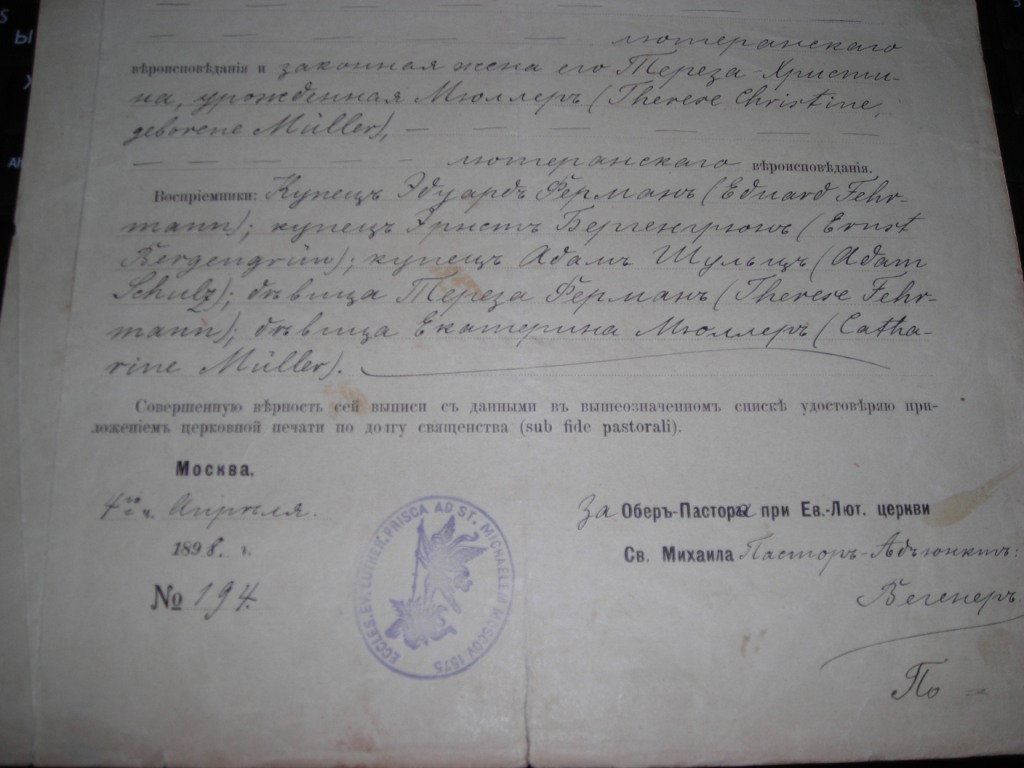 лютеранскаго
вѣроисповѣданія и законная жена его Тереза-Христи-
на, урожденная Мюллеръ (Therese Christine,
geborene Müller),
лютеранскаго вѣроисповѣданія.
Воспріемники: Купецъ Эдуардъ Ферманъ (Eduard Fehr-
mann); купецъ Эрнстъ Бергенгрюнъ (Ernst
Bergengrün); купецъ Адамъ Шульцъ (Adam
Schulz); дѣвица Тереза Ферманъ (Therese Fehr-
mann); дѣвица Екатерина Мюллеръ (Catha-
rine Müller).
Совершенную вѣрность сей выписи съ данными въ вышеозначенномъ спискѣ удостовѣряю при-
ложеніемъ церковной печати по долгу священства (sub fide pastorali).
Москва,
4го ч. Апрѣля.
1898 г.
№ 194.
ECCLES. EV. LUTHER. PRISCA AD ST. MICHAELEM MOSCOV. 1575
За Оберъ-Пастора при Ев.-Лют. церкви
Св. Михаила Пасторъ-Адъюнктъ:
Вегенеръ.
По =